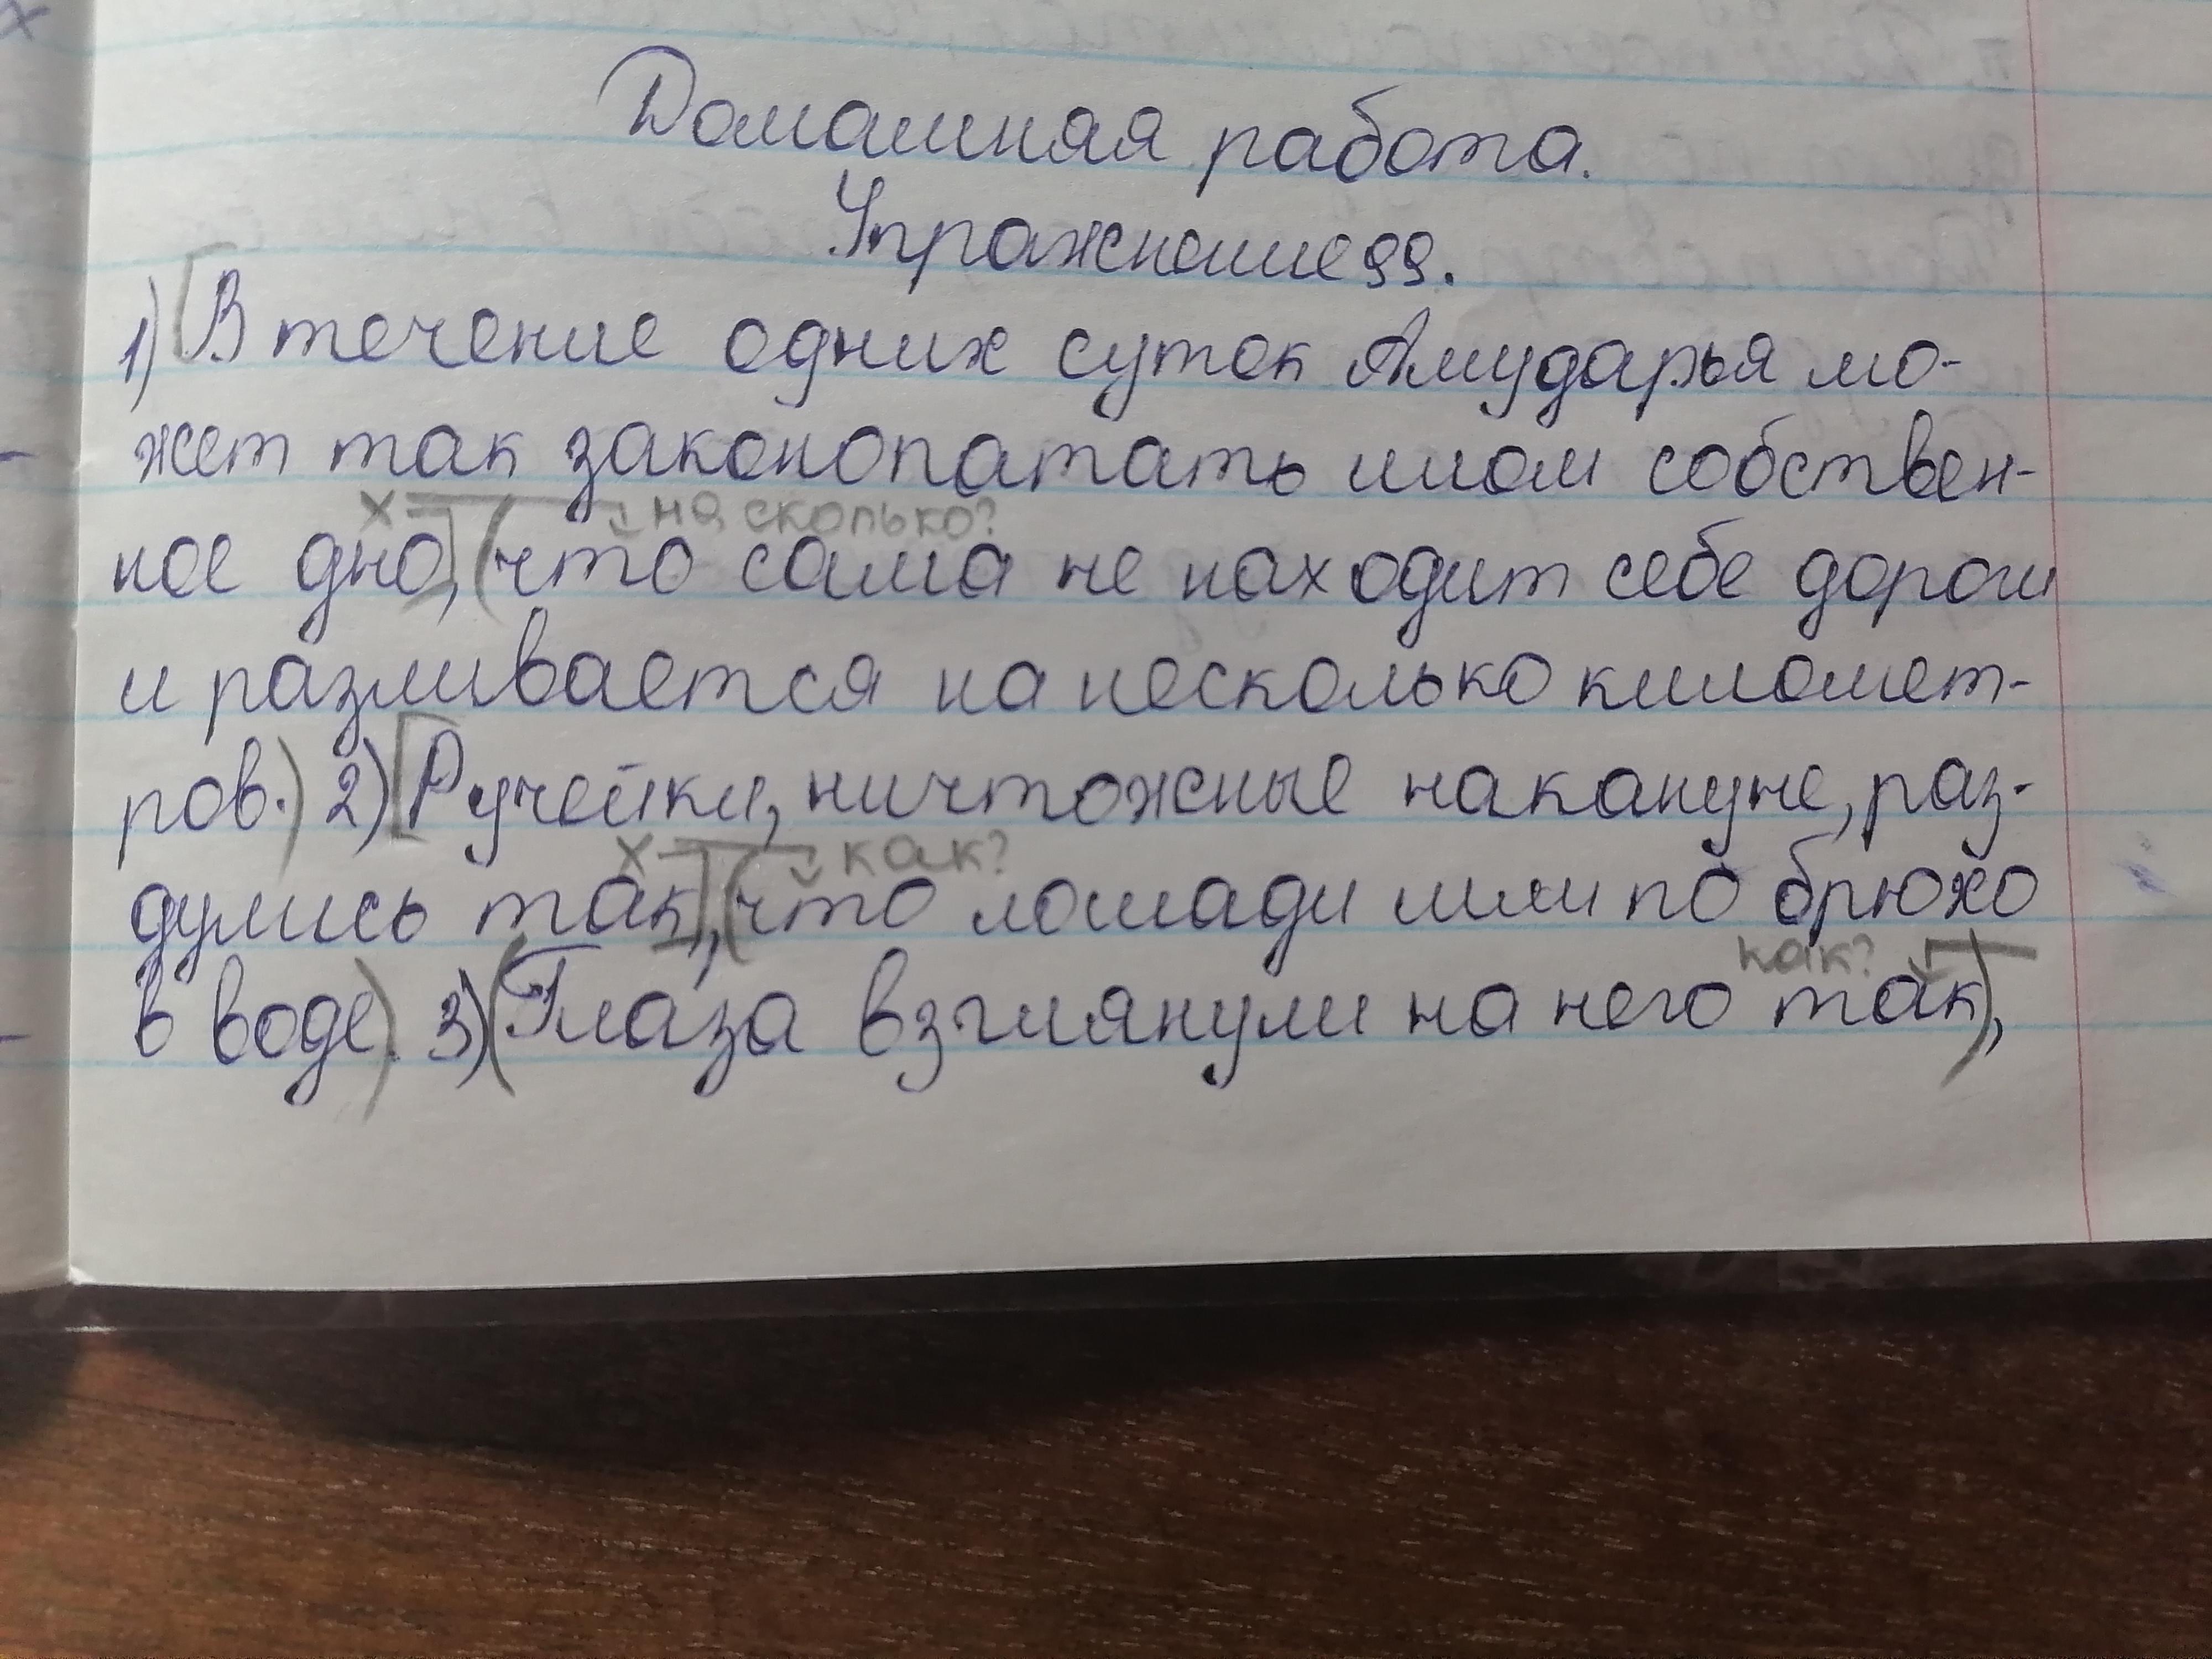 Домашняя работа.
Упражнение 99.
1) [В течение одних суток Амударья мо-
жет так законопатать илом собствен-
х на сколько?
ное дно], (что сама не находит себе дороги
и разливается на несколько километ-
ров.) 2) [Ручейки, ничтожные накануне, раз-
х как?
дулись так], (что лошади шли по брюхо
как?
в воде). 3) (Глаза взглянули на него так),